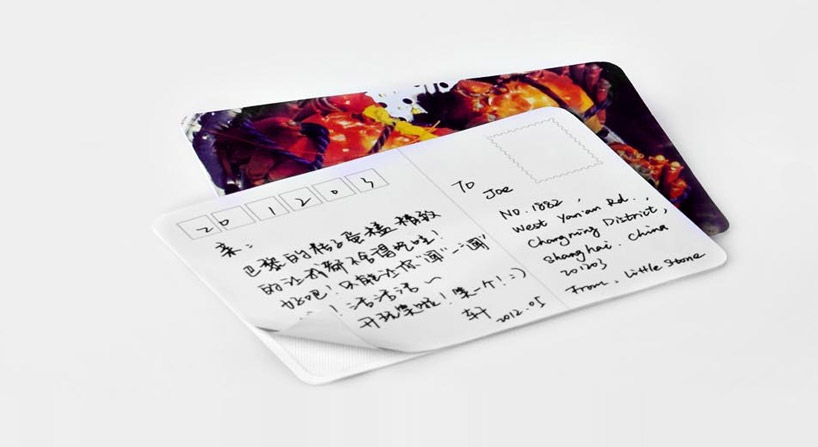 201203
亲：
巴黎的椅子蛋糕精致
的让我都不舍得吃哇！
好吧！只能让你“闻”一“闻”
！活活活～
开玩笑啦！笑一个！：）
轩
2012.05
To Joe
No.1882,
West Yan'an Rd.,
Changning District,
Shanghai. China
201203
From. Little Stone